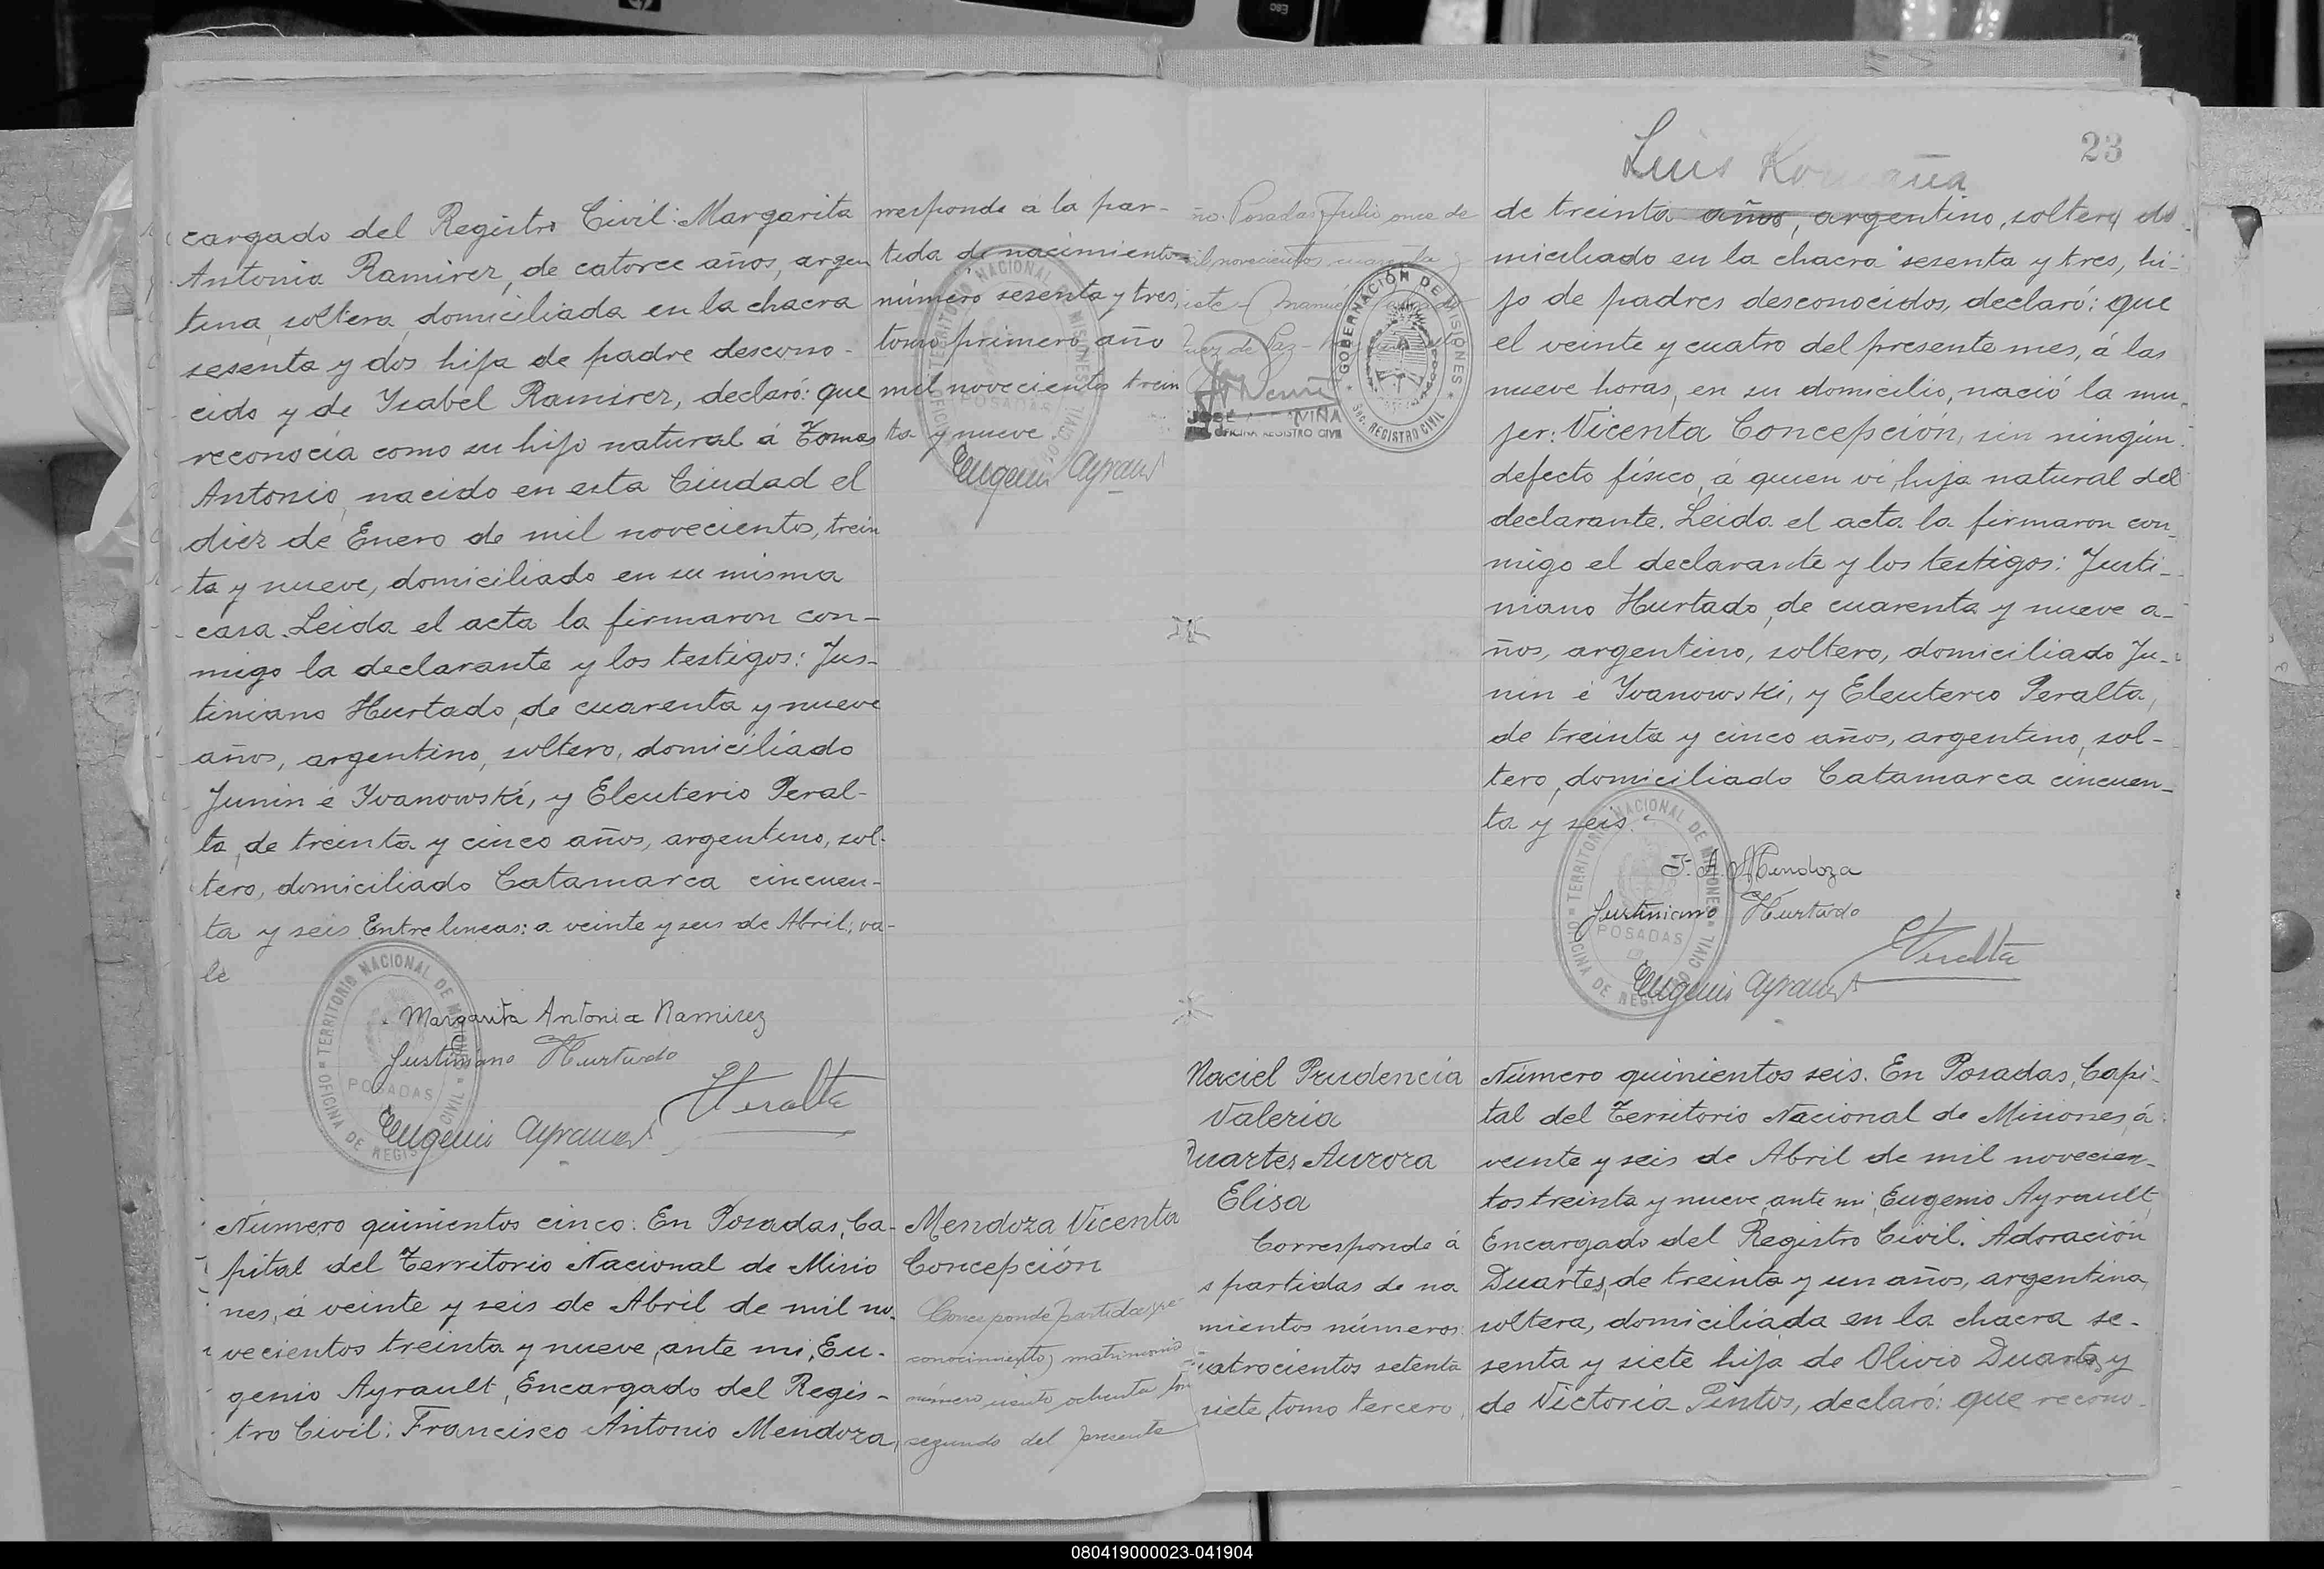 cargado del Registro Civil: Margarita
Antonia Ramirez, de catorce años, argen
tina, soltera, domiciliada en la chacra
sesenta y dos hija de padre descono-
cido y de Ysabel Ramirez, declaró: que
reconocía como su hijo natural á Tomas
Antonio, nacido en esta Ciudad el
diez de Enero de mil novecientos, trein
ta y nueve, domiciliado en su misma
casa. Leida el acta la firmaron con-
migo la declarante y los testigos: Jus-
tiniano Hurtado, de cuarenta y nueve
años, argentino, soltero, domiciliado
Junin é Yvanowski, y Eleuterio Peral-
ta, de treinta y cinco años, argentino, sol-
tero, domiciliado Catamarca cincuen-
ta y seis. Entre lineas: a veinte y seis de Abril; va-
le
Margarita Antonia Ramirez
Justiniano Hurtado
EPeralta
Eugenio Ayrault
TERRITORIO NACIONAL DE MISIONES
OFICINA DE REGISTRO CIVIL
POSADAS
Número quinientos cinco: En Posadas, Ca-
pital del Territorio Nacional de Misio
nes, á veinte y seis de Abril de mil no-
vecientos treinta y nueve, ante mi, Eu-
genio Ayrault, Encargado del Regis-
tro Civil: Francisco Antonio Mendoza,
rresponde á la par-
tida de nacimiento
número sesenta y tres,
tomo primero año
mil novecientos trein
ta y nueve.
Eugenio Ayrault
TERRITORIO NACIONAL DE MISIONES
OFICINA DE REGISTRO CIVIL
POSADAS
Mendoza Vicenta
Concepción
Corresponde partida re-
conocimiento, matrimonio
número ciento ochenta, tomo
segundo del presente
ño. Posadas, Julio once de
mil novecientos cuarenta y
siete
Juez de Paz
GOBERNACIÓN DE MISIONES
REGISTRO CIVIL
JOSÉ
OFICINA REGISTRO CIVIL
Maciel Prudencia
Valeria
Duartes Aurora
Elisa
Corresponde á
s partidas de na
mientos números
uatrocientos setenta
siete, tomo tercero,
23
Luis
de treinta años, argentino, soltero, do
miciliado en la chacra sesenta y tres, hi-
jo de padres desconocidos, declaró: que
el veinte y cuatro del presente mes, á las
nueve horas, en su domicilio, nació la mu-
jer: Vicenta Concepción, sin ningún
defecto físico, á quien vi, hija natural del
declarante. Leida el acta la firmaron con-
migo el declarante y los testigos: Justi-
niano Hurtado, de cuarenta y nueve a-
ños, argentino, soltero, domiciliado Ju-
nin é Yvanowski, y Eleuterio Peralta,
de treinta y cinco años, argentino, sol-
tero, domiciliado Catamarca cincuen-
ta y seis.
F. A. Mendoza
Justiniano Hurtado
EPeralta
Eugenio Ayrault
TERRITORIO NACIONAL DE MISIONES
OFICINA DE REGISTRO CIVIL
POSADAS
Número quinientos seis. En Posadas, Capi-
tal del Territorio Nacional de Misiones, á
veinte y seis de Abril de mil novecien-
tos treinta y nueve, ante mi, Eugenio Ayrault,
Encargado del Registro Civil. Adoración
Duartes, de treinta y un años, argentina,
soltera, domiciliada en la chacra se-
senta y siete hija de Olivio Duartes y
de Victoria Pintos, declaró: que recono-
080419000023-041904